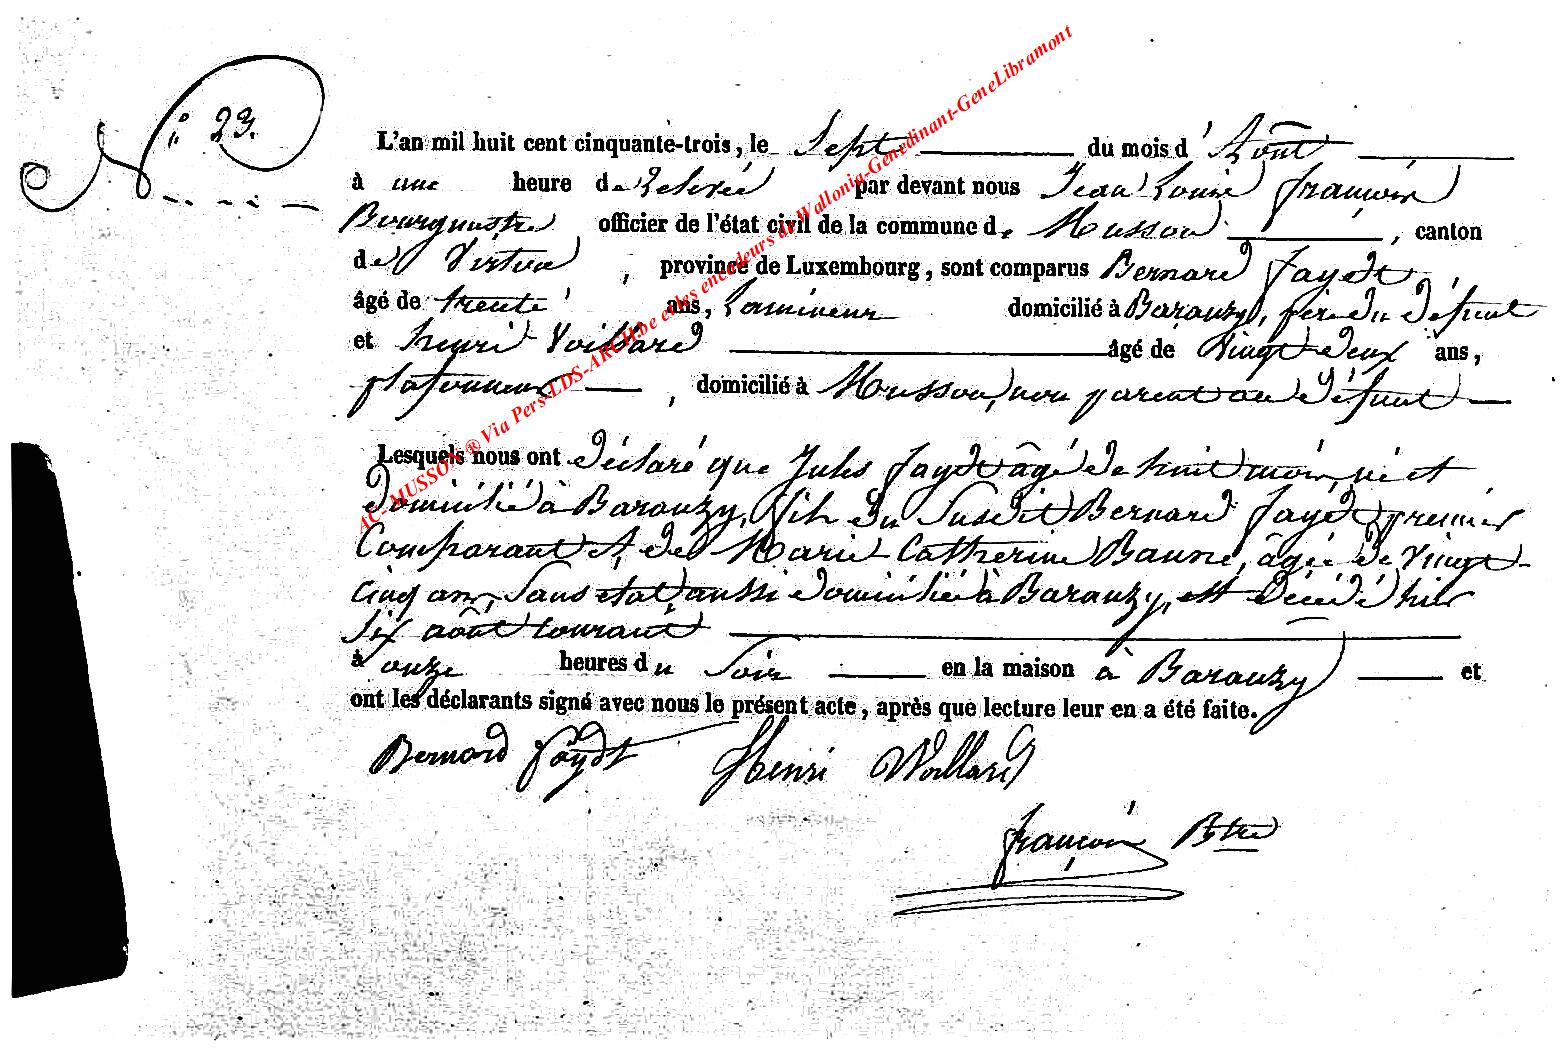 N° 23.
L'an mil huit cent cinquante-trois, le Sept du mois d'Août
à une heure de relevée par devant nous Jean Louis françois
Bourgmestre officier de l'état civil de la commune de Musson, canton
de Virton, province de Luxembourg, sont comparus Bernard Faydt
âgé de trente ans, Lamineur domicilié à Baranzy, père du défunt
et henri Voillard âgé de Vingt deux ans,
plafonneur, domicilié à Musson, non parent au défunt
Lesquels nous ont déclaré que Jules Faydt âgé de huit mois, né et
domicilié à Baranzy, fils du Susdit Bernard Faydt, premier
Comparant et de Marie Catherine Banne, âgée de Vingt
cinq ans, Sans etat, aussi domiciliée à Baranzy, est décédé hier
six août courant
à onze heures du Soir en la maison à Baranzy et
ont les déclarants signé avec nous le présent acte, après que lecture leur en a été faite.
Bernard Faydt Henri Woillard
françois Bstre
AC-MUSSON ® Via Pers-LDS-ARCH.be et des encodeurs de Wallonia-Genedinant-GeneLibramont